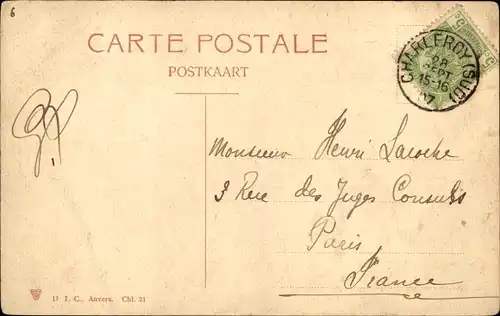 6
CARTE POSTALE
POSTKAART
CHARLEROY (SUD)
28
SEPT
15-16
7
Monsieur Henri Laroche
3 Rue des Juges Consuls
Paris
France
D. I. C., Anvers. Chl. 21